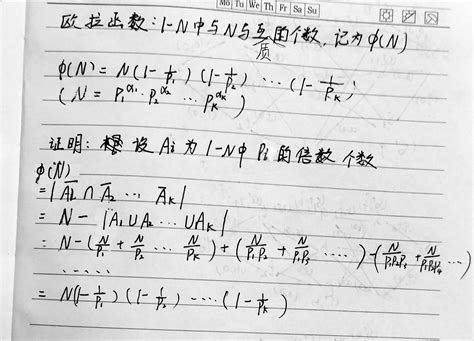 Mo Tu We Th Fr Sa Su
欧拉函数:1-N中与N与互质的个数,记为φ(N)
φ(N) = N(1-1/p₁)(1-1/p₂)⋯(1-1/pₖ)
(N = p₁^α₁·p₂^α₂ ⋯ pₖ^αₖ)
证明: 设 Ai 为 1-N中 Pi 的倍数个数
φ(N)
= |A̅₁ ∩ A̅₂ ⋯ A̅ₖ|
= N - |A₁∪A₂ ⋯ ∪Aₖ|
= N-(N/p₁ + N/p₂ ⋯ N/pₖ) + (N/p₁p₂ + N/p₁p₃ ⋯⋯) - (N/p₁p₂p₃ + N/p₁p₂p₄ ⋯)
⋯⋯
= N(1-1/p₁)(1-1/p₂)⋯(1-1/pₖ)